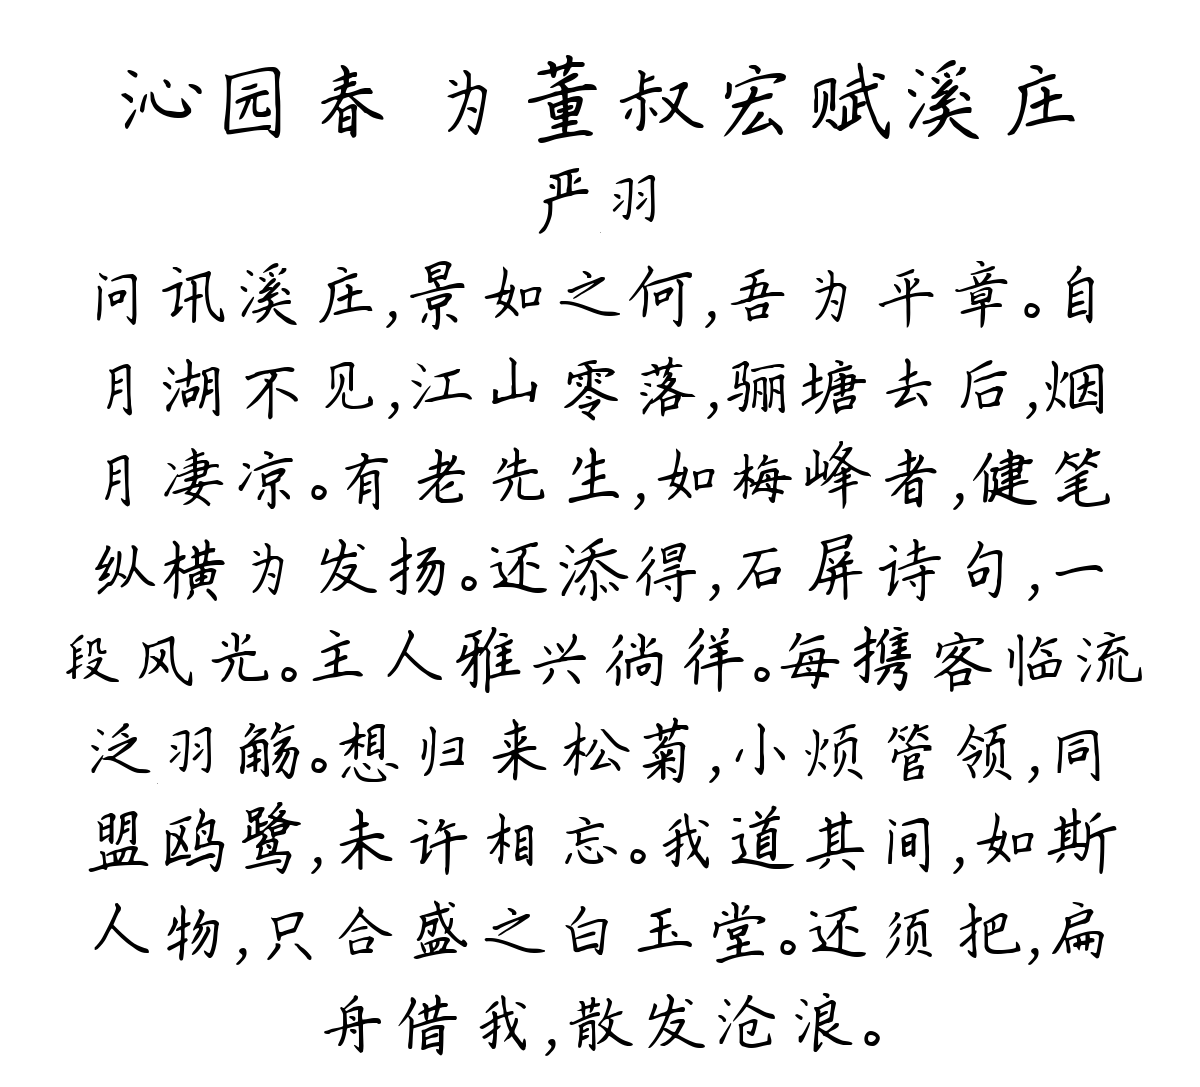 沁园春 为董叔宏赋溪庄
严羽
问讯溪庄,景如之何,吾为平章。自
月湖不见,江山零落,骊塘去后,烟
月凄凉。有老先生,如梅峰者,健笔
纵横为发扬。还添得,石屏诗句,一
段风光。主人雅兴徜徉。每携客临流
泛羽觞。想归来松菊,小烦管领,同
盟鸥鹭,未许相忘。我道其间,如斯
人物,只合盛之白玉堂。还须把,扁
舟借我,散发沧浪。